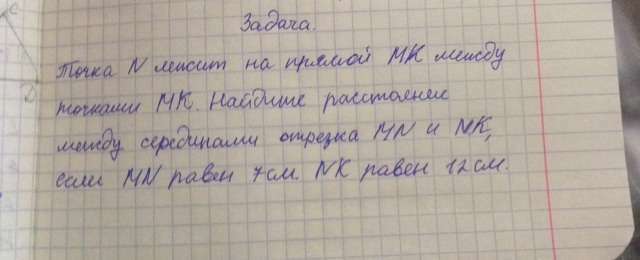 Задача.
Точка N лежит на прямой MK между
точками MK. Найдите расстояние
между серединами отрезка MN и NK,
если MN равен 7см. NK равен 12см.